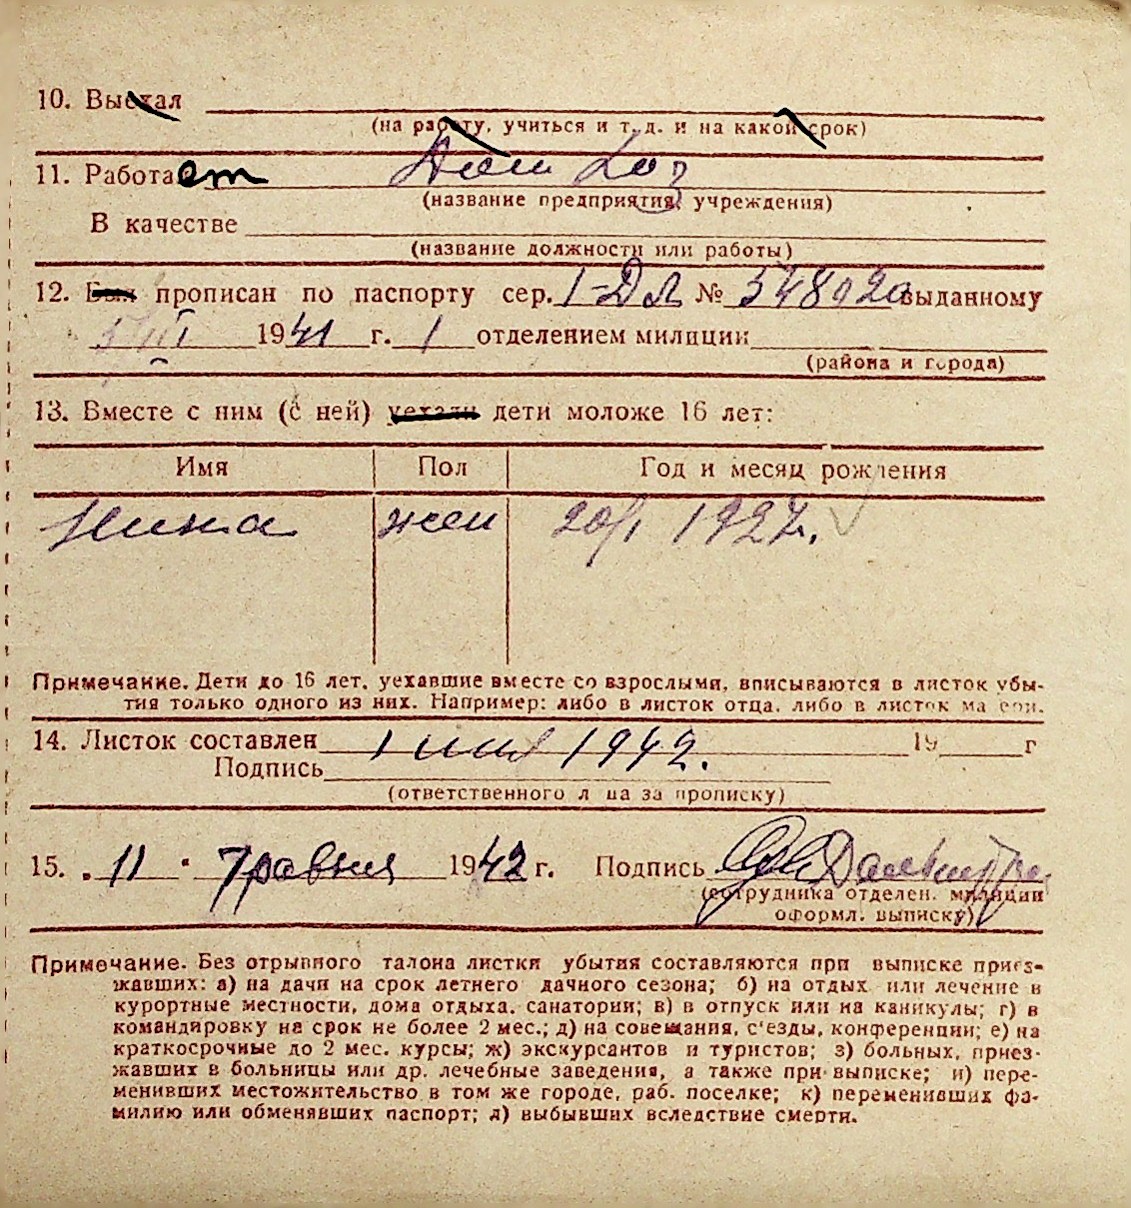 10. Выехал
(на работу, учиться и т. д. и на какой срок)
11. Работает Дом Хоз
(название предприятия, учреждения)
В качестве
(название должности или работы)
12. Был прописан по паспорту сер. I-ДЛ № 548920 выданному
5/III 1941 г. 1 отделением милиции
(района и города)
13. Вместе с ним (с ней) уехали дети моложе 16 лет:
Имя Пол Год и месяц рождения
Нина жен 20/I 1927.
Примечание. Дети до 16 лет, уехавшие вместе со взрослыми, вписываются в листок убы-
тия только одного из них. Например: либо в листок отца, либо в листок матери.
14. Листок составлен 1 мая 1942. 19 г
Подпись
(ответственного лица за прописку)
15. 11 Травня 1942 г. Подпись
(сотрудника отделен. милиции
оформл. выписку)
Примечание. Без отрывного талона листки убытия составляются при выписке приез-
жавших: а) на дачи на срок летнего дачного сезона; б) на отдых или лечение в
курортные местности, дома отдыха, санатории; в) в отпуск или на каникулы; г) в
командировку на срок не более 2 мес.; д) на совещания, с'езды, конференции; е) на
краткосрочные до 2 мес. курсы; ж) экскурсантов и туристов; з) больных, приез-
жавших в больницы или др. лечебные заведения, а также при выписке; и) пере-
менивших местожительство в том же городе, раб. поселке; к) переменивших фа-
милию или обменявших паспорт; л) выбывших вследствие смерти.